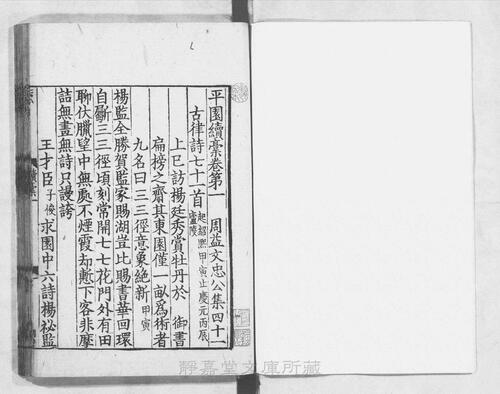 平園續稾卷第一　周益文忠公集四十一
古律詩七十一首 起紹熙甲寅止慶元丙辰 廬陵
上巳訪楊廷秀賞牡丹於　御書
扁榜之齋其東園僅一畝爲術者
九名曰三三徑意象絶新 甲寅
楊監全勝賀監家賜湖豈比賜書華回環
自斸三三徑頃刻常開七七花門外有田
聊伏臘望中無處不煙霞却慙下客非摩
詰無畫無詩只謾誇
王才臣 子俊 求園中六詩楊祕監
靜嘉堂文庫所藏